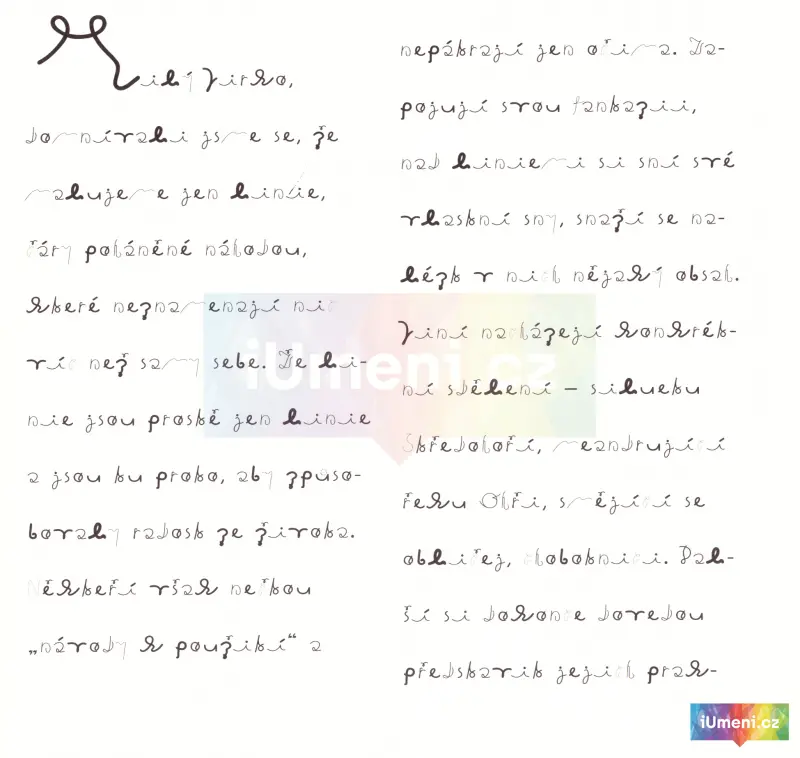 Milý Jirko,
domnívali jsme se, že
malujeme jen linie,
čáry poháněné náhodou,
které neznamenají nic
víc než samy sebe. Že li-
nie jsou prostě jen linie
a jsou tu proto, aby způso-
bovaly radost ze života.
Někteří však nečtou
„návody k použití“ a
nepátrají jen očima. Za-
pojují svou fantazii,
nad liniemi si sní své
vlastní sny, snaží se na-
lézt v nich nějaký obsah.
Jiní nacházejí konkrét-
ní sdělení – siluetu
Středohoří, meandrující
řeku Ohři, smějící se
obličej, chobotnici. Dal-
ší si dokonce dovedou
představit jejich prak-
iUmeni.cz
iUmeni.cz